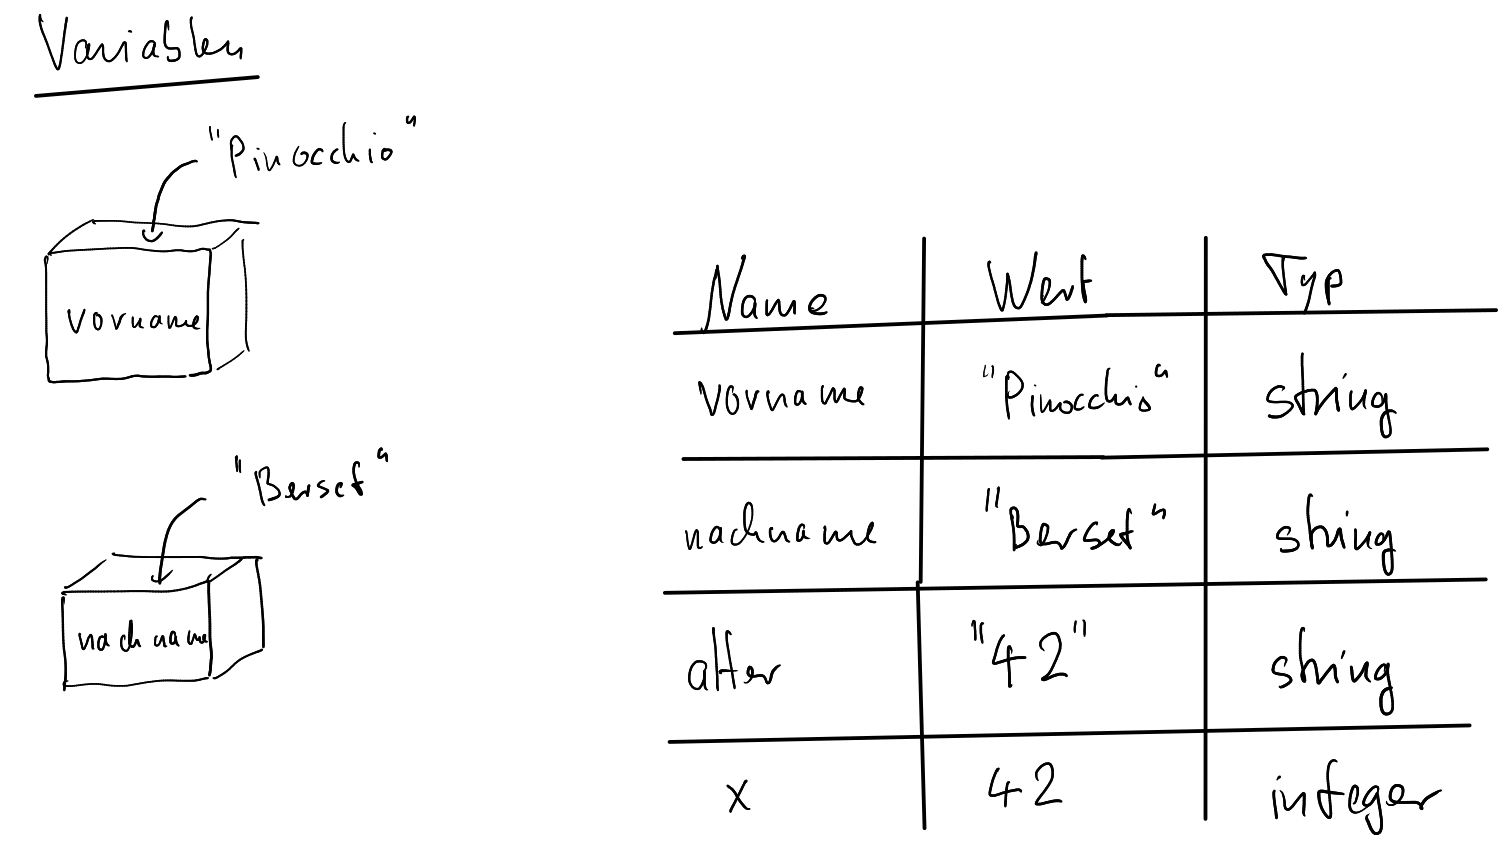 Variablen
"Pinocchio"
vorname
"Berset"
nachname
Name Wert Typ
vorname "Pinocchio" string
nachname "Berset" string
alter "42" string
x 42 integer